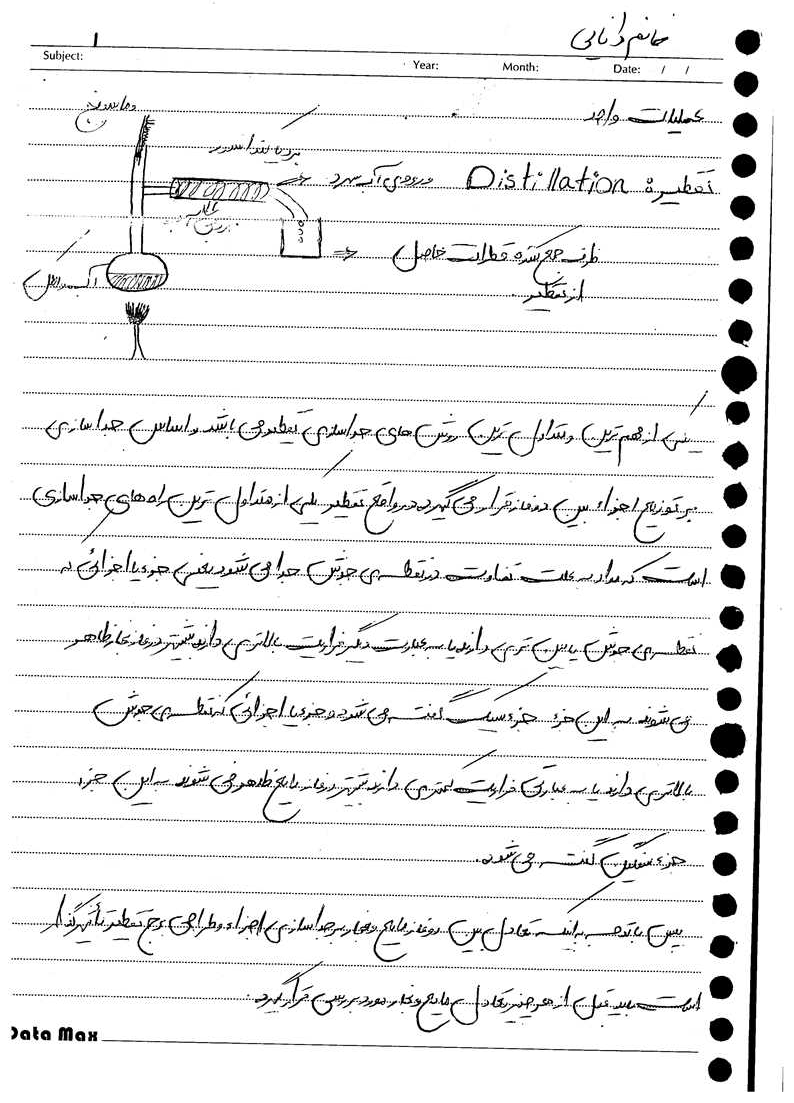 خانم دانایی
1
Subject:
Year: Month: Date: / /
عملیات واحد
دماسنج
تقطیر Distillation
ورودی آب سرد
ظرف جمع کننده قطرات حاصل
از تقطیر.
یکی از مهم ترین و متداول ترین روش های جداسازی تقطیر می باشد و اساس جداسازی
بر توزیع اجزاء بین دو فاز قرار می گیرد در واقع تقطیر یکی از متداول ترین راه های جداسازی
است که مواد به علت تفاوت در نقطه ی جوش جدا می شود یعنی جزء یا اجزائی که
نقطه ی جوش پایین تری دارند یا به عبارت دیگر فراریت بالاتری دارند بیشتر در فاز بخار ظاهر
می شوند به این جزء جزء سبک گفته می شود و جزء یا اجزائی که نقطه ی جوش
بالاتری دارند یا به عبارتی فراریت کمتری دارند بیشتر در فاز مایع ظاهر می شوند به این جزء
جزء سنگین گفته می شود.
پس با توجه به اینکه تعادل بین دو فاز مایع و بخار بر جداسازی اجزاء و طراحی برج تقطیر تأثیرگذار
است باید قبل از هر چیز تعادل مایع و بخار مورد بررسی قرار گیرد.
Data Max